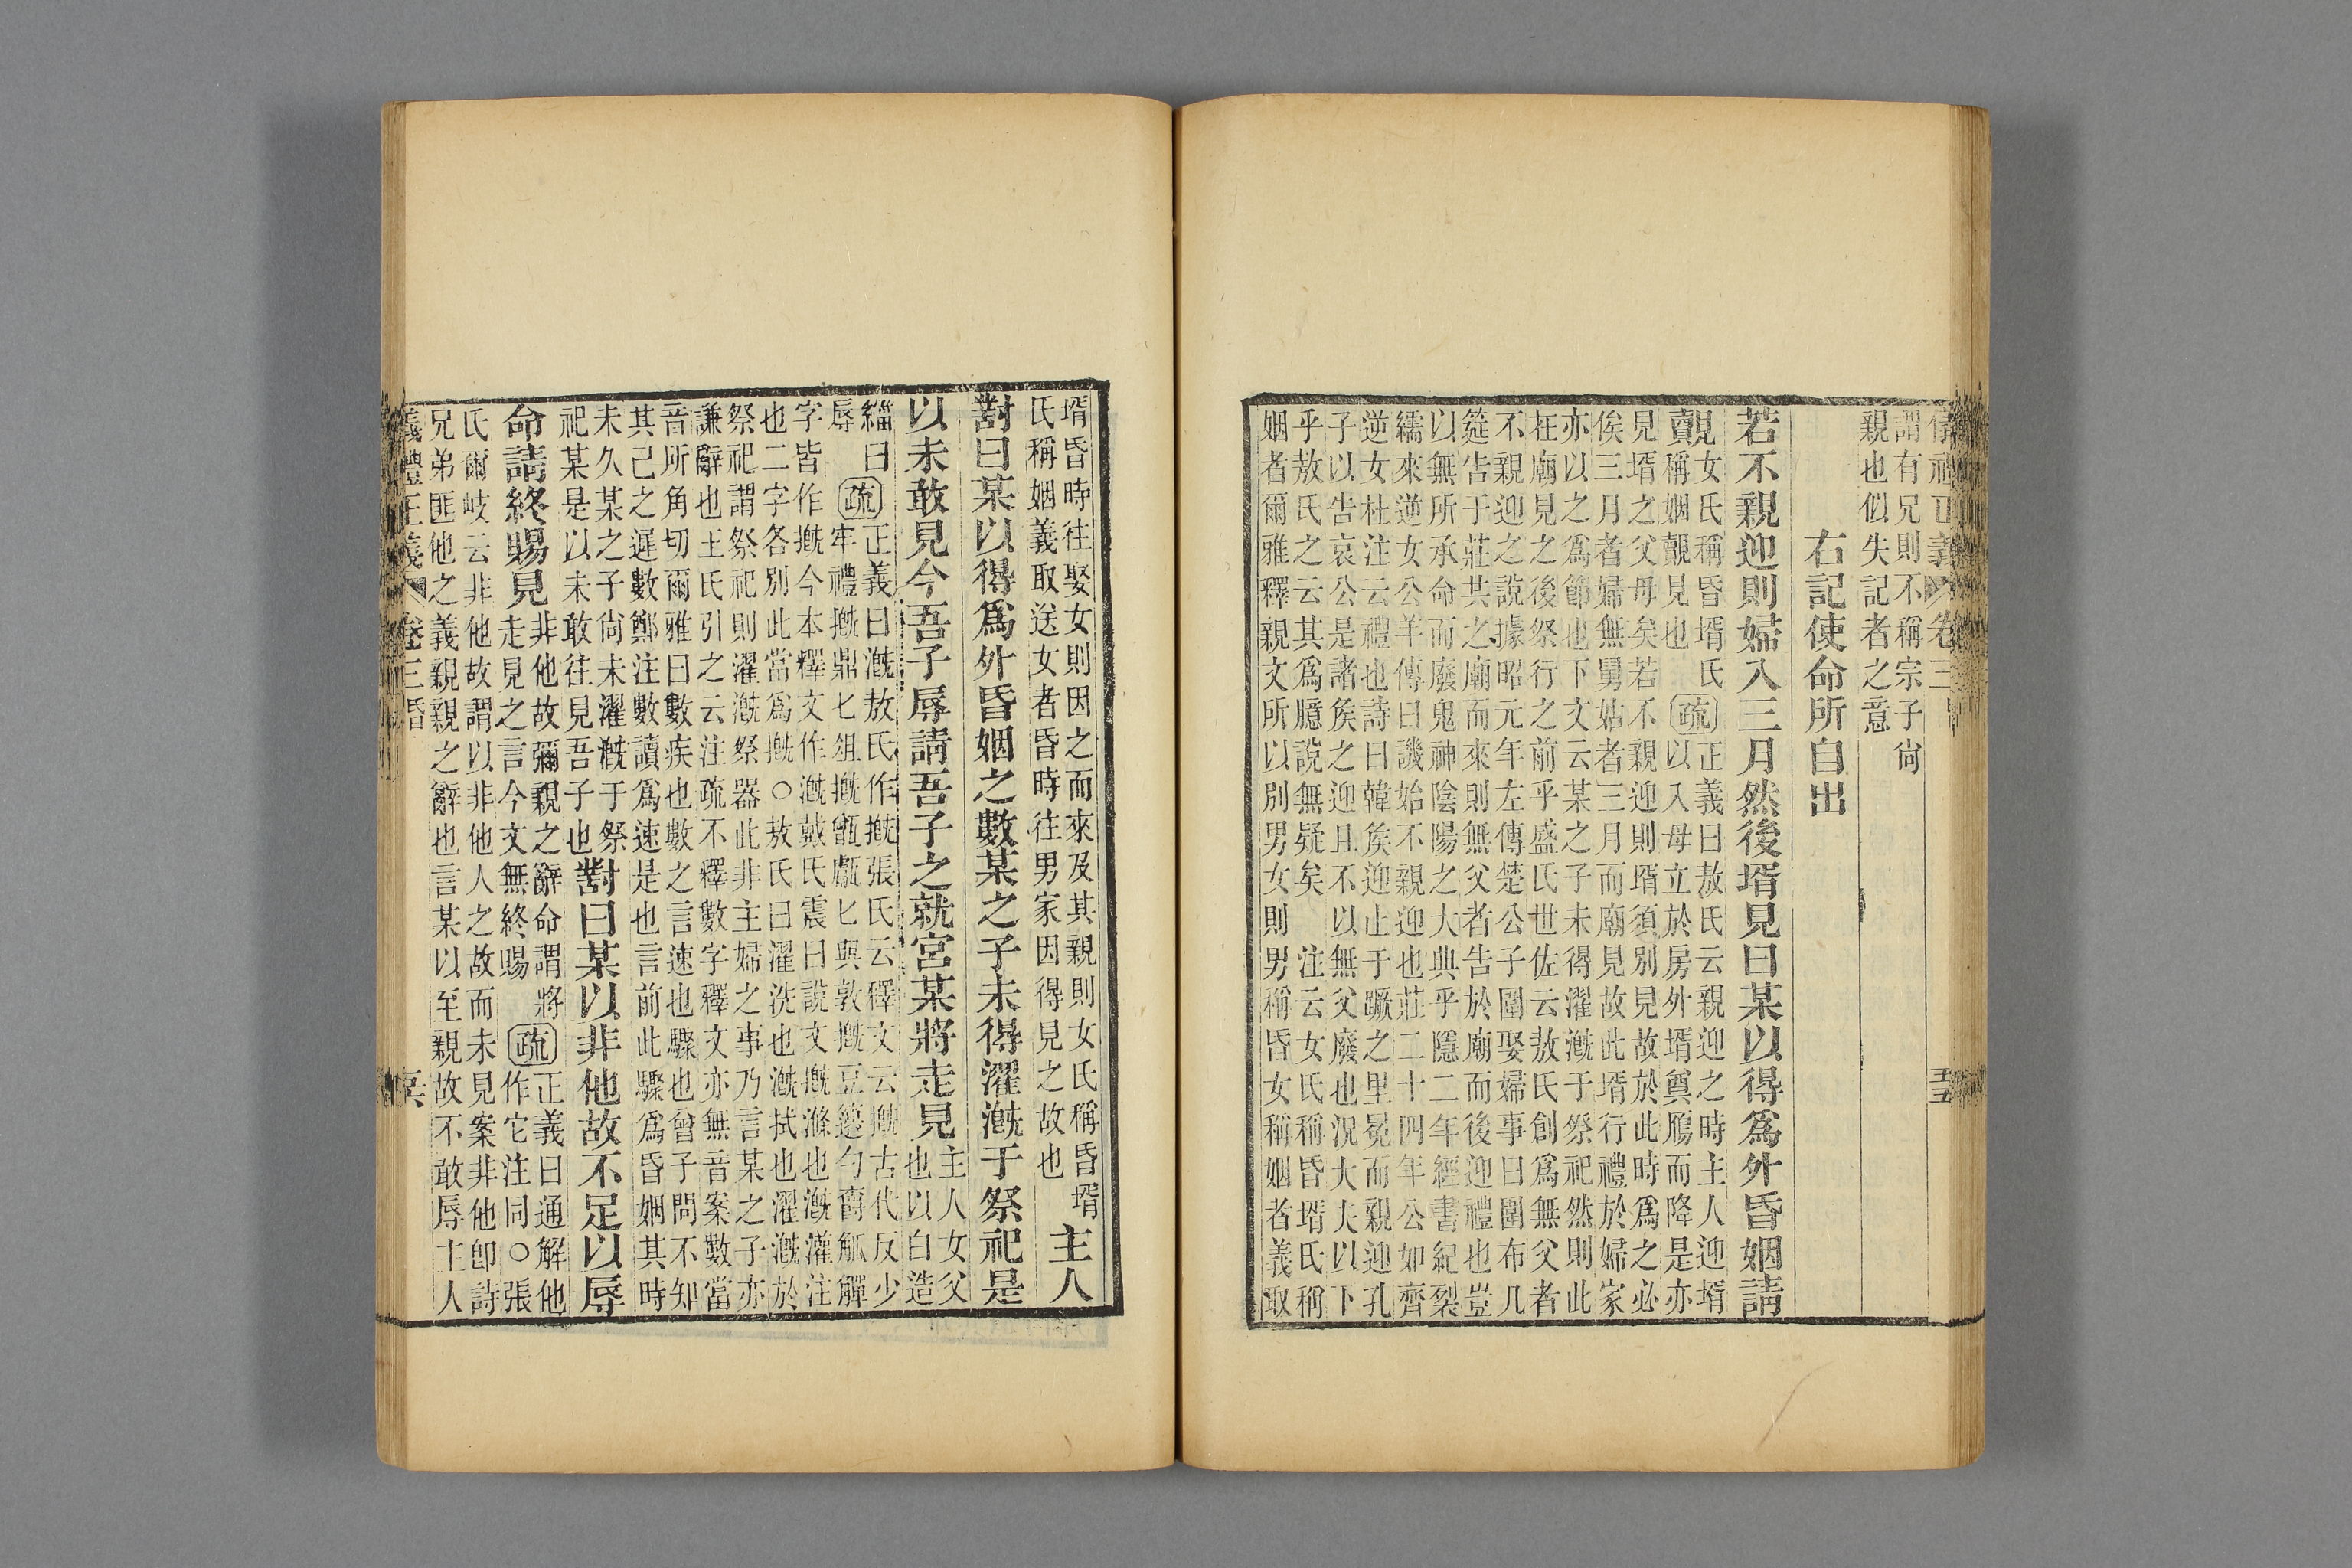 儀禮正義 卷三 五五
謂有兄則不稱宗子尙
親也似失記者之意
右記使命所自出
若不親迎則婦入三月然後壻見曰某以得爲外昏姻請
覿
女氏稱昏壻氏
稱姻覿見也
疏
正義曰敖氏云親迎之時主人迎壻
以入母立於房外壻奠鴈而降是亦
見壻之父母矣若不親迎則壻須別見故於此時爲之必
俟三月者婦無舅姑者三月而廟見故此壻行禮於婦家
亦以之爲節也下文云某之子未得濯漑于祭祀然則此
在廟見之後祭行之前乎盛氏世佐云敖氏創爲無父者
不親迎之說據昭元年左傳楚公子圍娶婦事曰圍布几
筵告于莊共之廟而來則無父者告於廟而後迎禮也豈
以無所承命而廢鬼神陰陽之大典乎隱二年經書紀裂
繻來逆女公羊傳曰譏始不親迎也莊二十四年公如齊
逆女杜注云禮也詩曰韓矦迎止于蹶之里冕而親迎孔
子以告哀公是諸矦之迎且不以無父廢也況大夫以下
乎敖氏之云其爲臆說無疑矣 注云女氏稱昏壻氏稱
姻者爾雅釋親文所以別男女則男稱昏女稱姻者義取
壻昏時往娶女則因之而來及其親則女氏稱昏壻
氏稱姻義取送女者昏時往男家因得見之故也
主人
對曰某以得爲外昏姻之數某之子未得濯漑于祭祀是
以未敢見今吾子辱請吾子之就宮某將走見
主人女父
也以白造
緇曰
辱
疏
正義曰漑敖氏作摡張氏云釋文云摡古代反少
牢禮摡鼎匕俎摡甑甗匕與敦摡豆籩勺爵觚觶
字皆作摡今本釋文作漑戴氏震曰說文摡滌也漑灌注
也二字各別此當爲摡○敖氏曰濯洗也漑拭也濯漑於
祭祀謂祭祀則濯漑祭器此非主婦之事乃言某之子亦
謙辭也王氏引之云注疏不釋數字釋文亦無音案數當
音所角切爾雅曰數疾也數之言速也驟也曾子問不知
其己之遲數鄭注數讀爲速是也言前此驟爲昏姻其時
未久某之子尙未濯漑于祭
祀某是以未敢往見吾子也
對曰某以非他故不足以辱
命請終賜見
非他故彌親之辭命謂將
走見之言今文無終賜
疏
正義曰通解他
作它注同○張
氏爾岐云非他故謂以非他人之故而未見案非他卽詩
兄弟匪他之義親親之辭也言某以至親故不敢辱主人
義禮正義 卷三昏